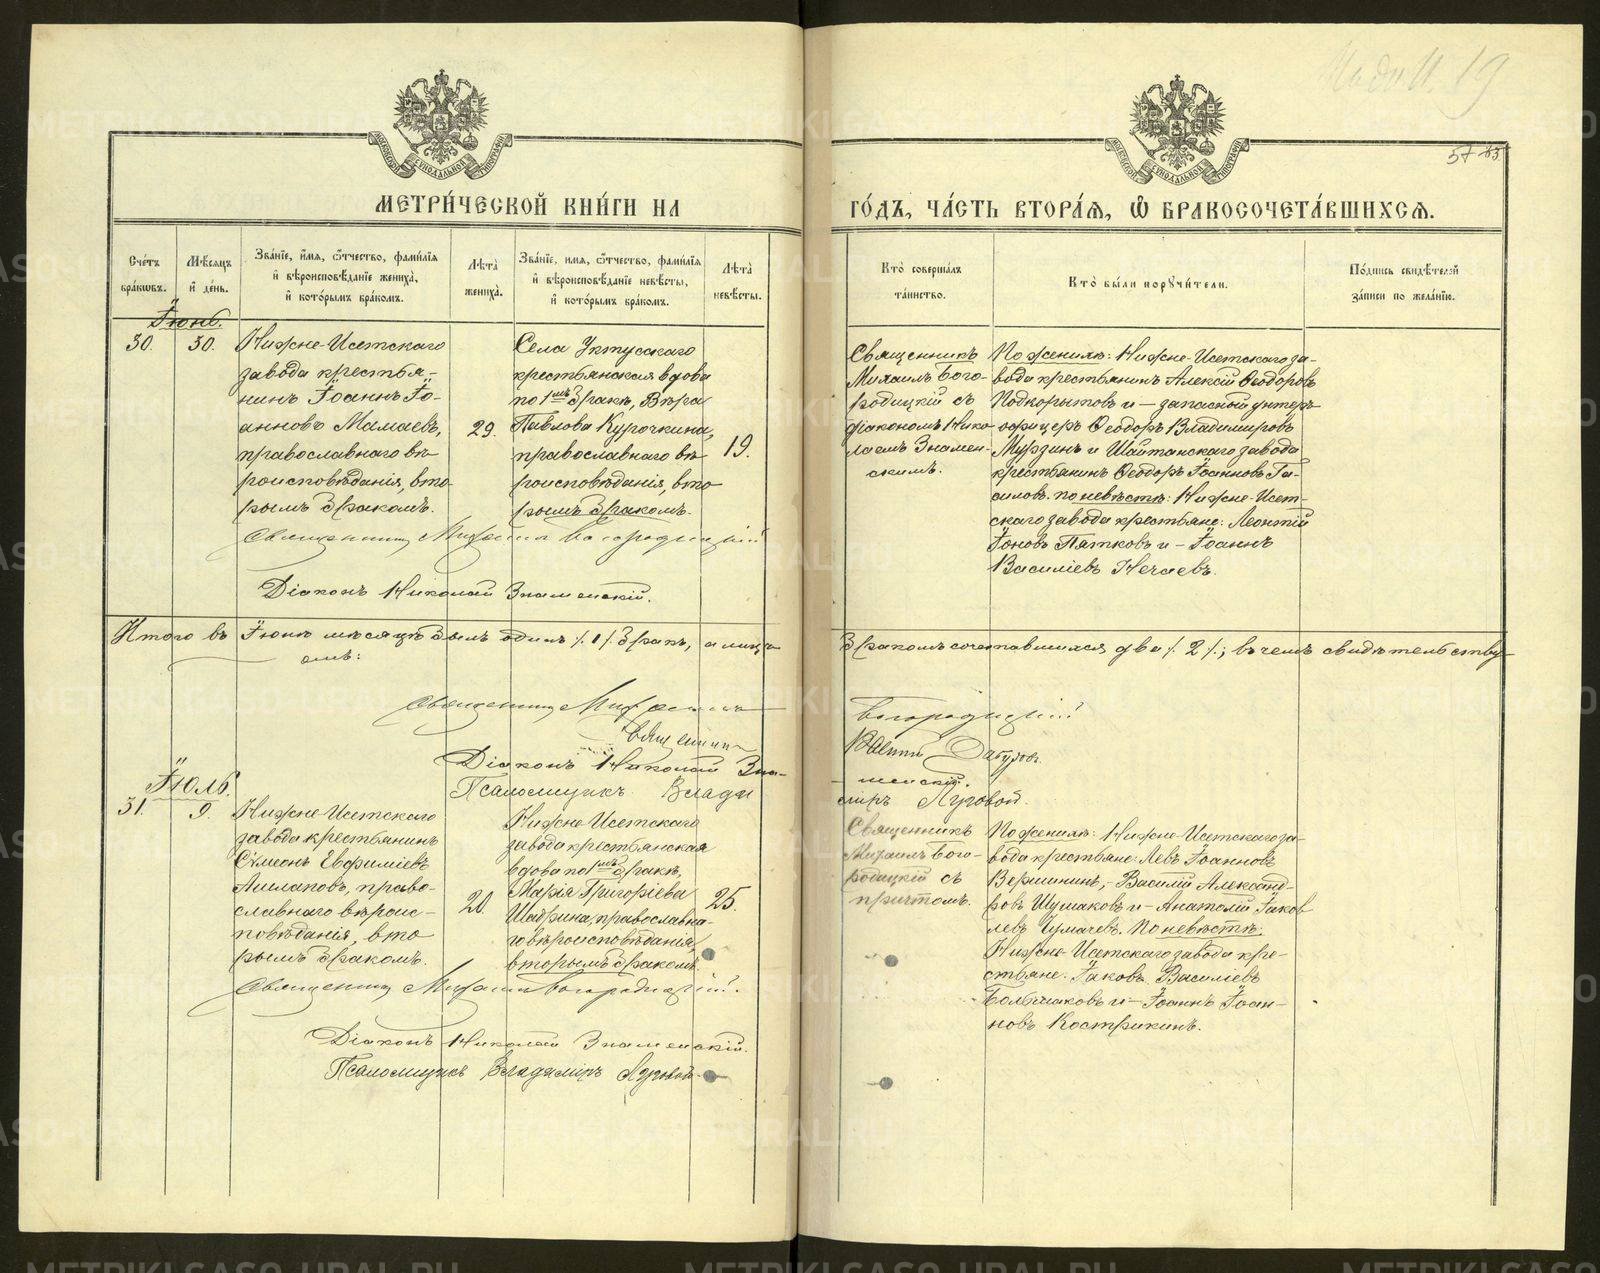 57 83
МЕТРИ́ЧЕСКОЙ КНИ́ГИ НА
ГО́ДЪ, ЧА́СТЬ ВТОРА́Я, Ѡ҆ БРАКОСОЧЕТА́ВШИХСЯ.
Сче́тъ бра́ковъ.
Мѣ́сяцъ и҆ де́нь.
Зва́нїе, и҆́мя, ѻ҆́тчество, фами́лїя и҆ вѣроисповѣ́данїе жениха̀, и҆ кото́рымъ бра́комъ.
Лѣ́та жениха̀.
Зва́нїе, и҆́мя, ѻ҆́тчество, фами́лїя и҆ вѣроисповѣ́данїе невѣ́сты, и҆ кото́рымъ бра́комъ.
Лѣ́та невѣ́сты.
Кто̀ соверша́лъ та́инство.
Кто̀ бы́ли порꙋчи́тели.
По́дпись свидѣ́телей за́писи по жела́нїю.
Іюнь.
30.
30.
Нижне-Исетскаго
завода крестья-
нинъ Іоаннъ Іо-
анновъ Мамаевъ,
православнаго вѣ-
роисповѣданія, вто
рымъ бракомъ.
29.
Села Уктусскаго
крестьянская вдова
по 1мъ бракѣ, Вѣра
Павлова Курочкина,
православнаго вѣ
роисповѣданія, вто
рымъ бракомъ.
19.
Священникъ
Михаилъ Бого-
родицкій съ
діакономъ Нико
лаемъ Знамен-
скимъ.
По женихѣ: Нижне-Исетскаго за-
вода крестьянинъ Алексій Ѳеодоровъ
Подкорытовъ и — запасной унтеръ
офицеръ Ѳеодоръ Владимировъ
Мурзинъ и Шайтанскаго завода
крестьянинъ Ѳеодоръ Іоанновъ Га-
силовъ. по невѣстѣ: Нижне-Исет-
скаго завода крестьяне: Леонтій
Іоновъ Пятковъ и — Іоаннъ
Василіевъ Нечаевъ.
Священникъ Михаилъ Богородицкій
Діаконъ Николай Знаменскій.
Итого въ Іюнѣ мѣсяцѣ былъ одинъ ./. 1 ./. бракъ, а лицъ
бракомъ сочетавшихся два ./. 2 ./.; въ чемъ свидѣтельству-
емъ:
Священникъ Михаилъ
Богородицкій
Діаконъ Николай Зна-
менскій.
Псаломщикъ Влади
міръ Луговой.
Іюль.
31.
9.
Нижне-Исетскаго
завода крестьянинъ
Сѵмеонъ Евфиміевъ
Аплаповъ, право-
славнаго вѣроис-
повѣданія, вто
рымъ бракомъ.
20.
Нижне-Исетскаго
завода крестьянская
вдова по 1мъ бракѣ,
Марія Григоріева
Шадрина, православна-
го вѣроисповѣданія,
вторымъ бракомъ.
25.
Священникъ
Михаилъ Бого-
родицкій съ
причтомъ.
По женихѣ: Нижне-Исетскаго за-
вода крестьяне: Левъ Іоанновъ
Вершининъ, — Василій Александ-
ровъ Шушаковъ и — Анатолій Іаков
левъ Чумачевъ. По невѣстѣ:
Нижне-Исетскаго завода кре-
стьяне: Іаковъ Василіевъ
Большаковъ и — Іоаннъ Іоан-
новъ Кострикинъ.
Священникъ Михаилъ Богородицкій.
Діаконъ Николай Знаменскій.
Псаломщикъ Владиміръ Луговой.